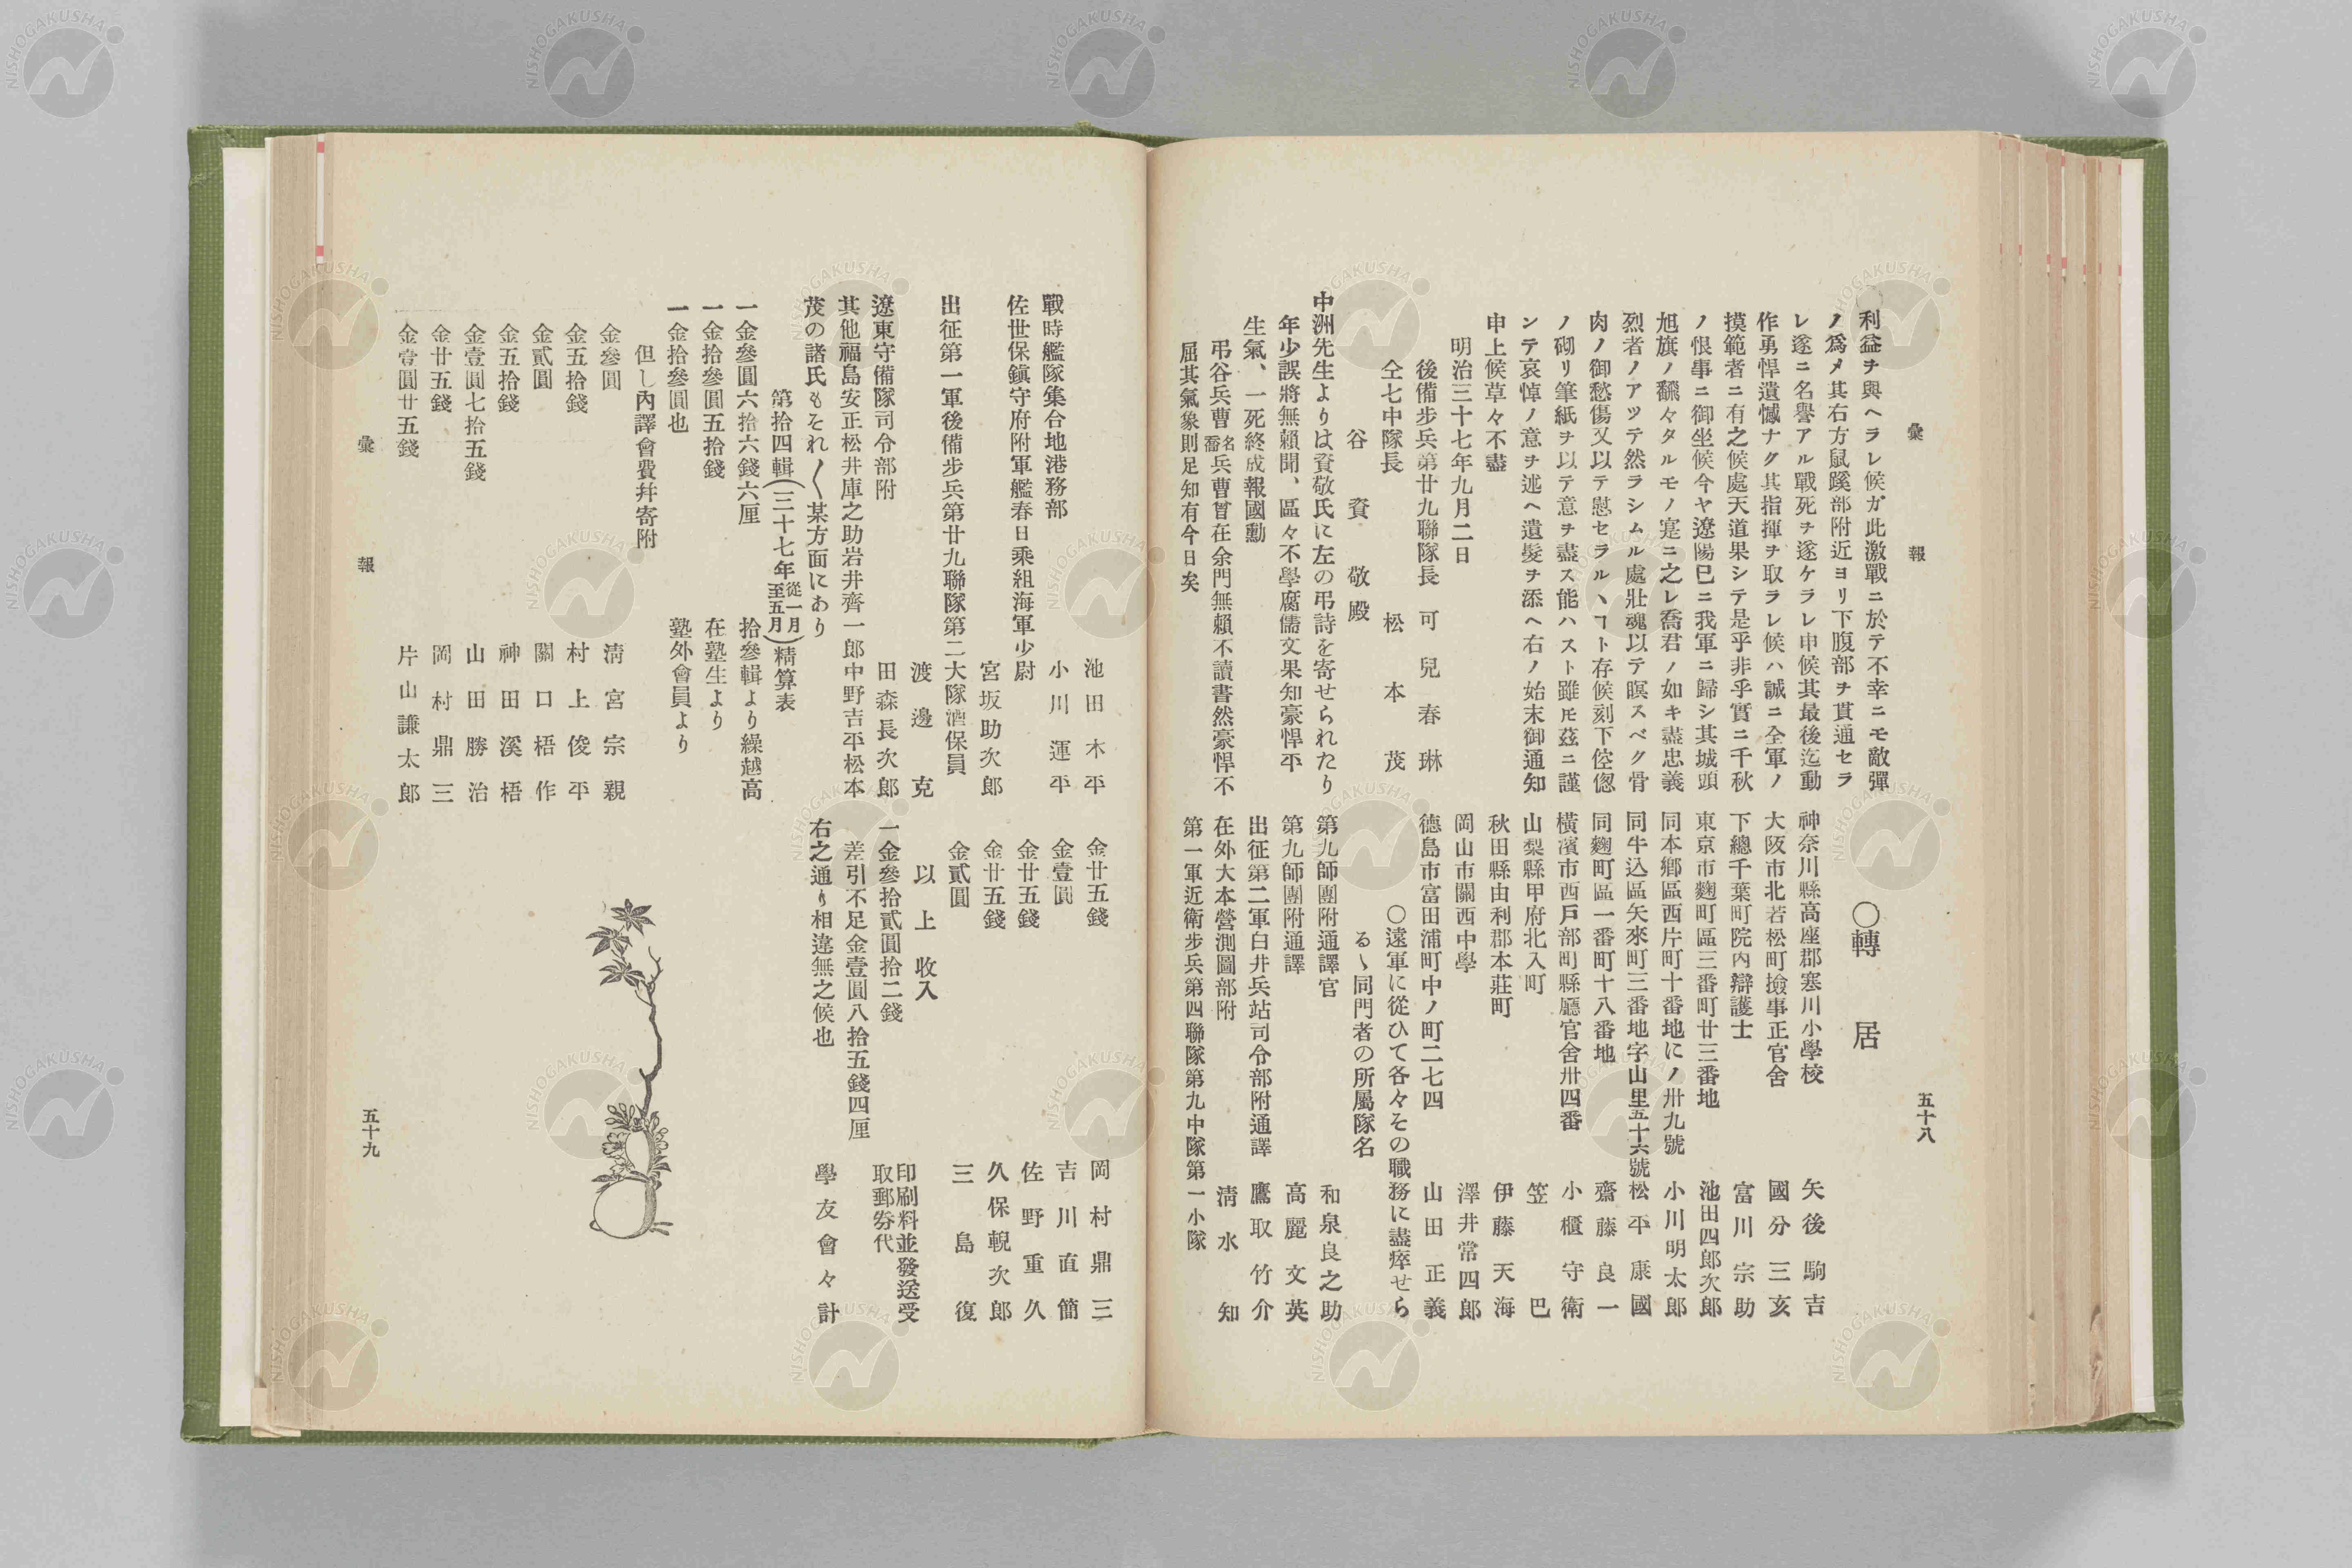 彙報
五十八
利益ヲ與ヘラレ候ガ此激戰ニ於テ不幸ニモ敵彈
ノ爲メ其右方鼠蹊部附近ヨリ下腹部ヲ貫通セラ
レ遂ニ名譽アル戰死ヲ遂ケラレ申候其最後迄動
作勇悍遺憾ナク其指揮ヲ取ラレ候ハ誠ニ全軍ノ
摸範者ニ有之候處天道果シテ是乎非乎實ニ千秋
ノ恨事ニ御坐候今ヤ遼陽已ニ我軍ニ歸シ其城頭
旭旗ノ飜々タルモノ寔ニ之レ喬君ノ如キ盡忠義
烈者ノアツテ然ラシムル處壯魂以テ瞑スベク骨
肉ノ御愁傷又以テ慰セラルヽヿト存候刻下倥偬
ノ砌リ筆紙ヲ以テ意ヲ盡ス能ハスト雖𪜈茲ニ謹
ンテ哀悼ノ意ヲ述ヘ遺髮ヲ添ヘ右ノ始末御通知
申上候草々不盡
明治三十七年九月二日
後備步兵第廿九聯隊長 可兒春琳
仝七中隊長 松本茂
谷資敬殿
中洲先生よりは資敬氏に左の弔詩を寄せられたり
年少誤將無賴聞、區々不學腐儒文果知豪悍平
生氣、一死終成報國勳
弔谷兵曹名喬兵曹曾在余門無賴不讀書然豪悍不
屈其氣象則足知有今日矣
○轉居
神奈川縣高座郡寒川小學校 矢後駒吉
大阪市北若松町撿事正官舍 國分三亥
下總千葉町院内辯護士 富川宗助
東京市麴町區三番町廿三番地 池田四郎次郎
同本鄕區西片町十番地にノ卅九號 小川明太郎
同牛込區矢來町三番地字山里五十六號 松平康國
同麴町區一番町十八番地 齋藤良一
橫濱市西戸部町縣廳官舍卅四番 小櫃守衛
山梨縣甲府北入町 笠巴
秋田縣由利郡本莊町 伊藤天海
岡山市關西中學 澤井常四郎
德島市富田浦町中ノ町二七四 山田正義
○遠軍に從ひて各々その職務に盡瘁せら
るゝ同門者の所屬隊名
第九師團附通譯官 和泉良之助
第九師團附通譯 高麗文英
出征第二軍白井兵站司令部附通譯 鷹取竹介
在外大本營測圖部附 淸水知
第一軍近衛步兵第四聯隊第九中隊第一小隊
池田木平
戰時艦隊集合地港務部 小川運平
佐世保鎭守府附軍艦春日乘組海軍少尉
宮坂助次郎
出征第一軍後備步兵第廿九聯隊第二大隊酒保員
渡邊克
遼東守備隊司令部附 田森長次郎
其他福島安正松井庫之助岩井齊一郎中野吉平松本
茂の諸氏もそれ〱某方面にあり
第拾四輯(三十七年從一月至五月)精算表
一金參圓六拾六錢六厘 拾參輯より繰越高
一金拾參圓五拾錢 在塾生より
一金拾參圓也 塾外會員より
但し內譯會費幷寄附
金參圓 淸宮宗親
金五拾錢 村上俊平
金貳圓 關口梧作
金五拾錢 神田溪梧
金壹圓七拾五錢 山田勝治
金廿五錢 岡村鼎三
金壹圓廿五錢 片山謙太郎
金廿五錢 岡村鼎三
金壹圓 吉川直簡
金廿五錢 佐野重久
金廿五錢 久保輗次郎
金貳圓 三島復
以上收入
一金參拾貳圓拾二錢 印刷料並發送受取郵劵代
差引不足金壹圓八拾五錢四厘
右之通り相違無之候也 學友會々計
彙報
五十九